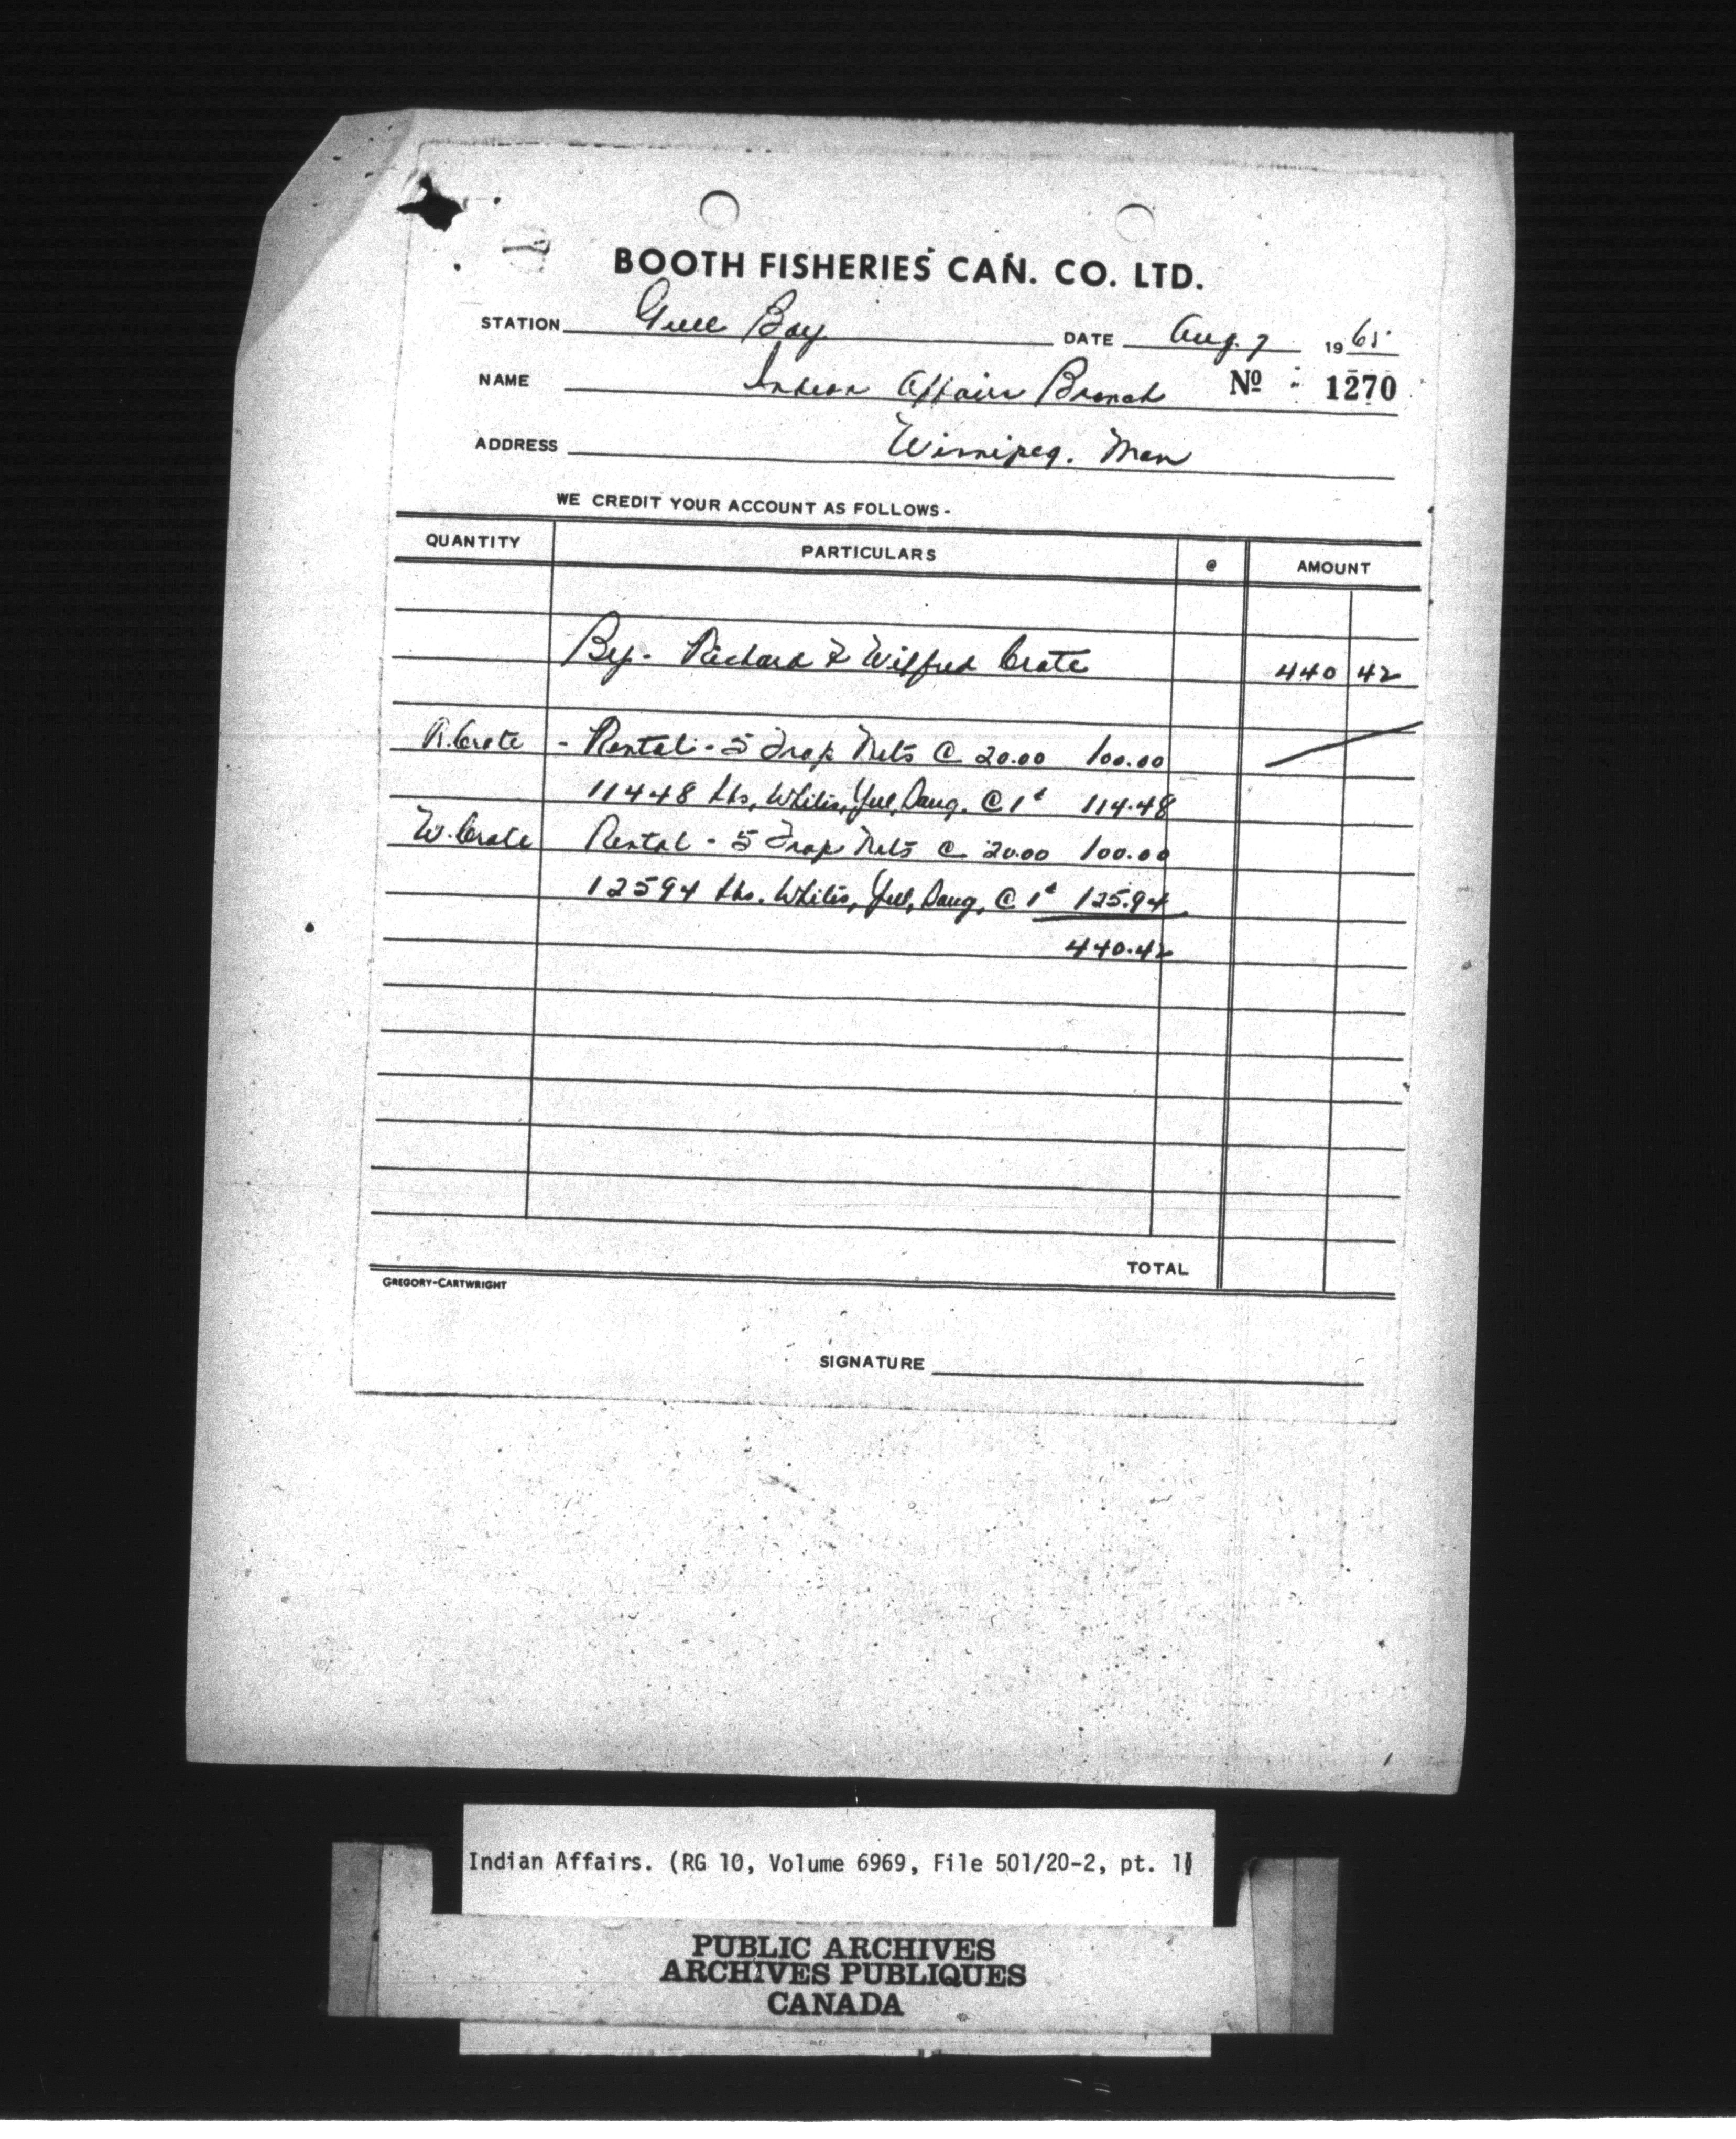 BOOTH FISHERIES CAN. CO. LTD.
STATION Gull Bay DATE Aug. 7 1965
NAME Indian Affairs Branch No 1270
ADDRESS Winnipeg. Man
WE CREDIT YOUR ACCOUNT AS FOLLOWS-
QUANTITY PARTICULARS @ AMOUNT
By- Richard & Wilfred Crate 440 42
R. Crate - Rental - 5 Trap Nets @ 20.00 100.00
11448 Lbs, Whites, Yell, Saug. @ 1¢ 114.48
W. Crate Rental - 5 Trap Nets @ 20.00 100.00
12594 Lbs. Whites, Yell, Saug, @ 1¢ 125.94
440.42
TOTAL
GREGORY-CARTWRIGHT
SIGNATURE
Indian Affairs. (RG 10, Volume 6969, File 501/20-2, pt. 1)
PUBLIC ARCHIVES
ARCHIVES PUBLIQUES
CANADA